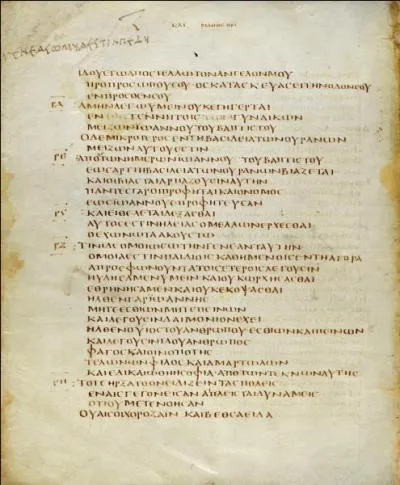 ΙΔΟΥΕΓΩΑΠΟϹΤΕΛΛΩΤΟΝΑΓΓΕΛΟΝΜΟΥ
ΠΡΟΠΡΟϹΩΠΟΥϹΟΥ ΟϹΚΑΤΑϹΚΕΥΑϹΕΙΤΗΝΟΔΟΝϹΟΥ
ΕΝΠΡΟϹΘΕΝϹΟΥ
ΑΜΗΝΛΕΓΩΥΜΕΙΝΟΥΚΕΓΗΓΕΡΤΑΙ
ΕΝ ΓΕΝΝΗΤΟΙϹ ΓΥΝΑΙΚΩΝ
ΜΕΙΖΩΝΙΩΑΝΝΟΥΤΟΥΒΑΠΤΙϹΤΟΥ
ΟΔΕΜΙΚΡΟΤΕΡΟϹΕΝΤΗΒΑϹΙΛΕΙΑΤΩΝΟΥΡΑΝΩΝ
ΜΕΙΖΩΝΑΥΤΟΥΕϹΤΙΝ
ΡΕ ΑΠΟΤΩΝΗΜΕΡΩΝΙΩΑΝΝΟΥ ΤΟΥΒΑΠΤΙϹΤΟΥ
ΕΩϹΑΡΤΙΗΒΑϹΙΛΕΙΑΤΩΝΟΥΡΑΝΩΝΒΙΑΖΕΤΑΙ
ΚΑΙΟΙΒΙΑϹΤΑΙΑΡΠΑΖΟΥϹΙΝΑΥΤΗΝ
ΠΑΝΤΕϹΓΑΡΟΙΠΡΟΦΗΤΑΙΚΑΙΟΝΟΜΟϹ
ΕΩϹΙΩΑΝΟΥΕΠΡΟΦΗΤΕΥϹΑΝ
ΚΑΙΕΙΘΕΛΕΤΑΙΔΕΞΑϹΘΑΙ
ΑΥΤΟϹΕϹΤΙΝΗΛΕΙΑϹΟΜΕΛΛΩΝΕΡΧΕϹΘΑΙ
ΟΕΧΩΝΩΤΑΑΚΟΥΕΤΩ
ΡΖ ΤΙΝΙΔΕΟΜΟΙΩϹΩΤΗΝΓΕΝΕΑΝΤΑΥΤΗΝ
ΟΜΟΙΑΕϹΤΙΝΠΑΙΔΙΟΙϹΚΑΘΗΜΕΝΟΙϹΕΝΤΗΑΓΟΡΑ
ΑΠΡΟϹΦΩΝΟΥΝΤΑΤΟΙϹΕΤΕΡΟΙϹΛΕΓΟΥϹΙΝ
ΗΥΛΗϹΑΜΕΝΥΜΕΙΝΚΑΙΟΥΚΩΡΧΗϹΑϹΘΑΙ
ΕΘΡΗΝΗϹΑΜΕΝΚΑΙΟΥΚΕΚΟΨΑϹΘΑΙ
ΗΛΘΕΝΓΑΡΙΩΑΝΝΗϹ
ΜΗΤΕΕϹΘΙΩΝΜΗΤΕΠΕΙΝΩΝ
ΚΑΙΛΕΓΟΥϹΙΝΔΑΙΜΟΝΙΟΝΕΧΕΙ
ΗΛΘΕΝΟΥΙΟϹΤΟΥΑΝΘΡΩΠΟΥΕϹΘΙΩΝΚΑΙΠΕΙΝΩΝ
ΚΑΙΛΕΓΟΥϹΙΝΙΔΟΥΑΝΘΡΩΠΟϹ
ΦΑΓΟϹΚΑΙΟΙΝΟΠΟΤΗϹ
ΤΕΛΩΝΩΝΦΙΛΟϹΚΑΙΑΜΑΡΤΩΛΩΝ
ΚΑΙΕΔΙΚΑΙΩΘΗΗϹΟΦΙΑΑΠΟΤΩΝΤΕΚΝΩΝΑΥΤΗϹ
ΡΗ ΤΟΤΕΗΡΞΑΤΟΟΝΕΙΔΙΖΕΙΝΤΑϹΠΟΛΕΙϹ
ΕΝΑΙϹΓΕΓΟΝΕΙϹΑΝΑΙΠΛΕΙϹΤΑΙΔΥΝΑΜΕΙϹ
ΟΤΙΟΥΜΕΤΕΝΟΗϹΑΝ
ΟΥΑΙϹΟΙΧΟΡΟΖΑΙΝ ΚΑΙΒΕΘϹΑΕΙΔΑ